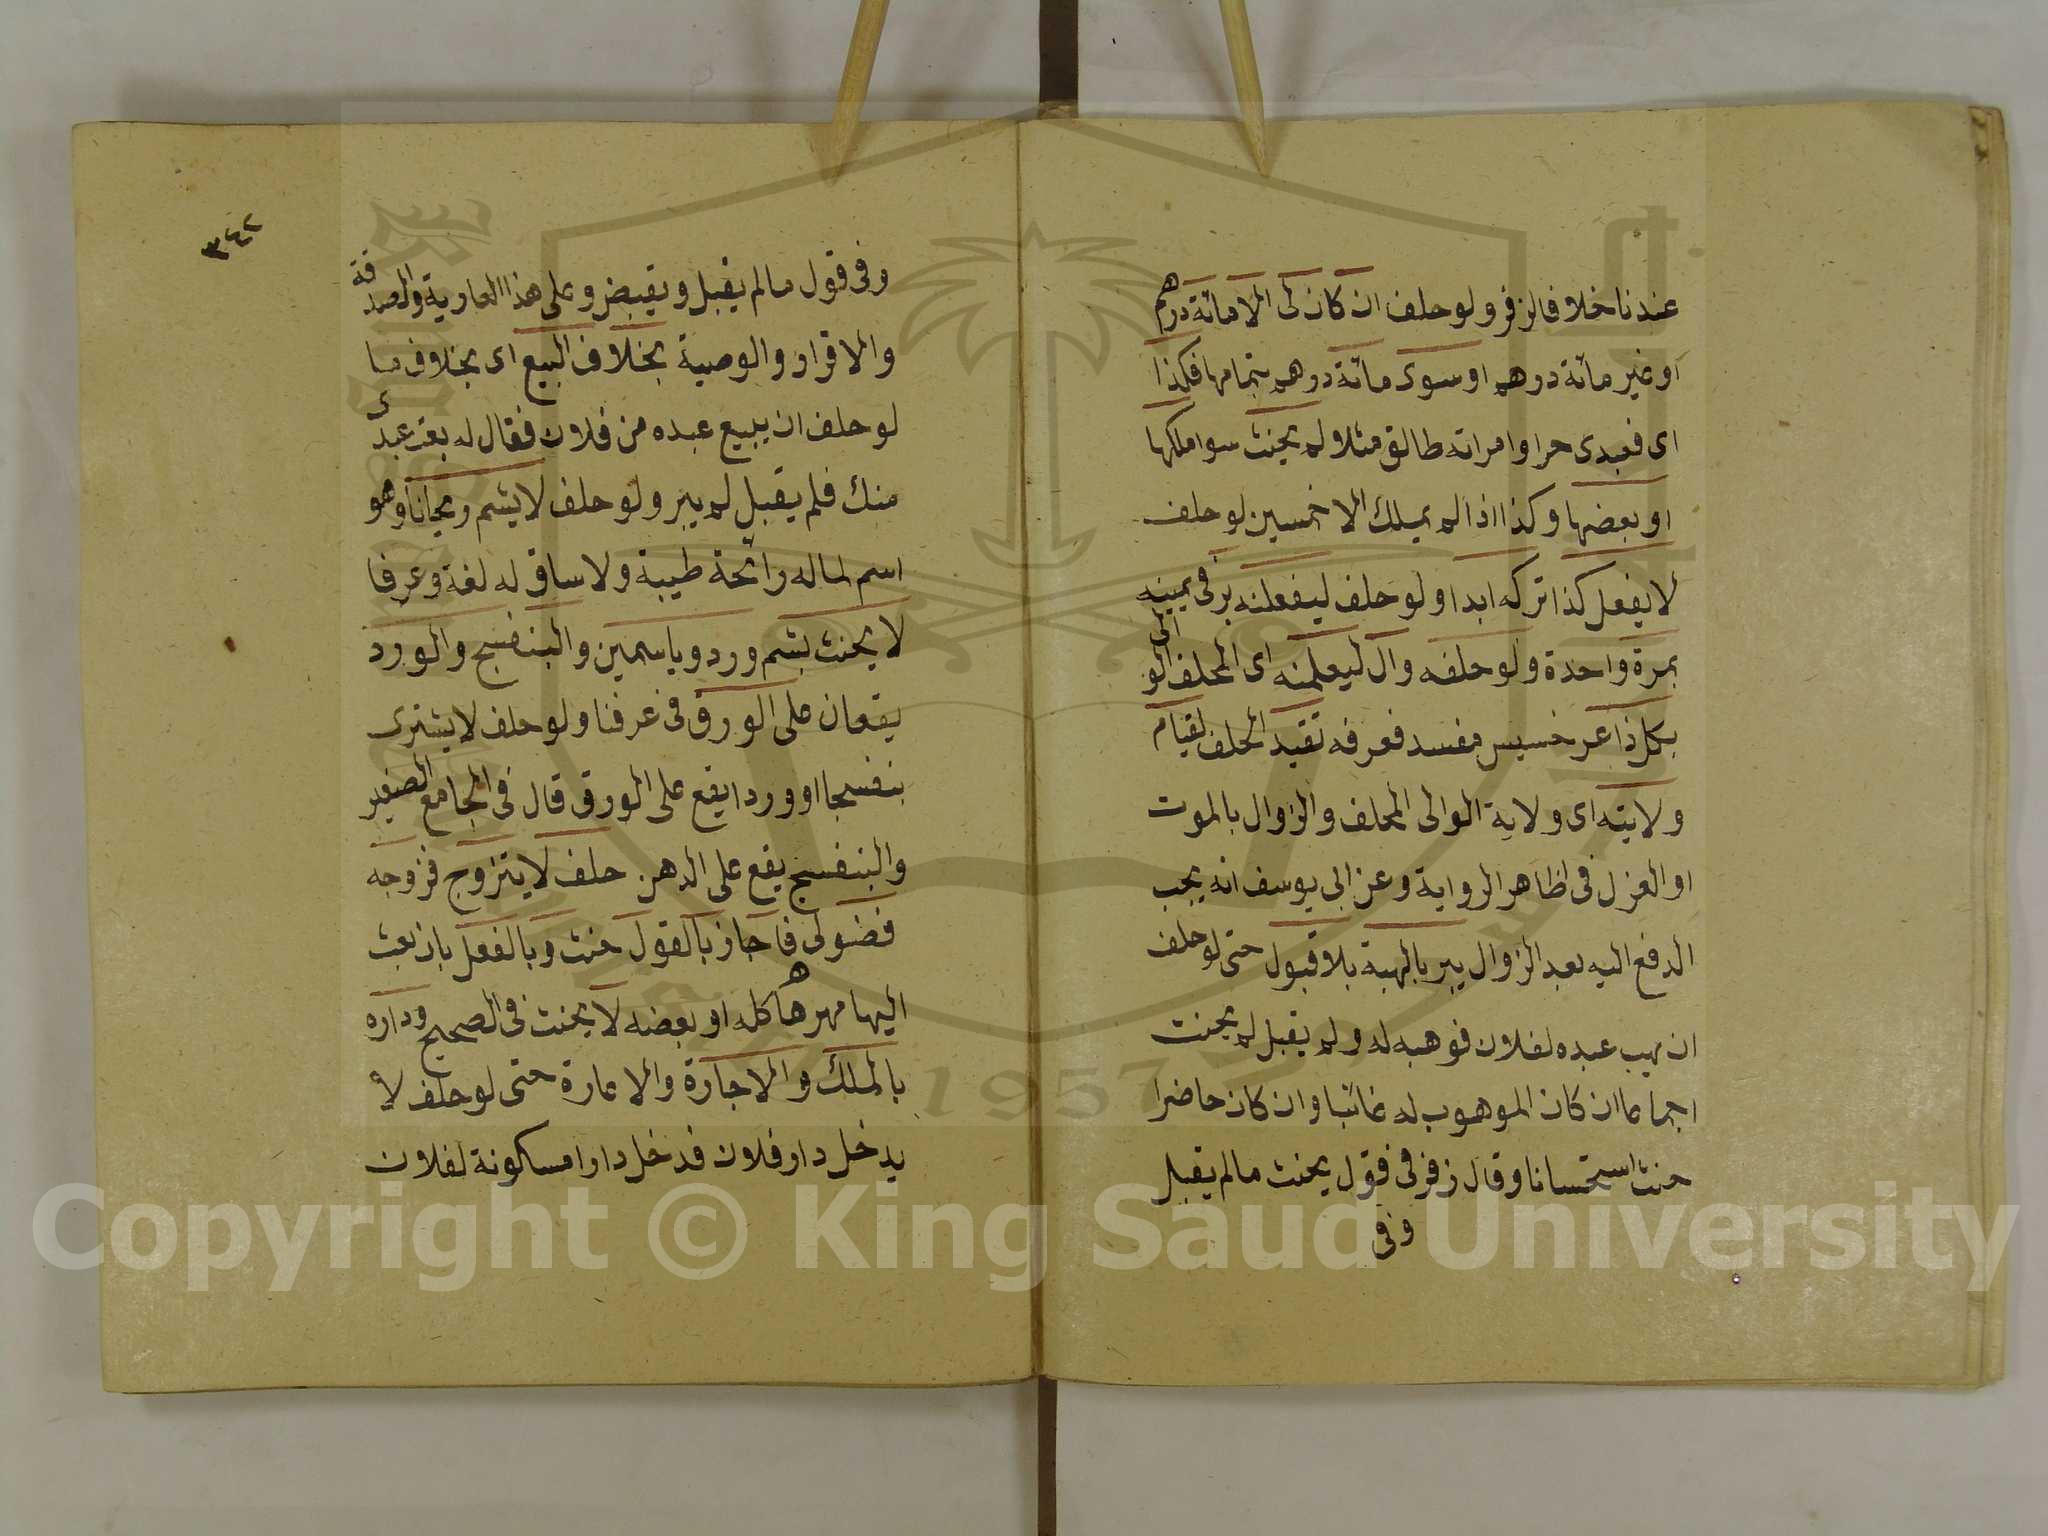 عندنا خلافا لزفر ولو حلف ان كان لى الا مائة درهم
او غير مائة درهم او سوى مائة درهم بتمامها فكذا
اى فعبدى حر او امراته طالق مثلا لم يحنث سوا ملكها
او بعضها وكذا اذا لم يملك الا خمسين لو حلف
لا يفعل كذا تركه ابدا ولو حلف ليفعلنه بر فى يمينه
بمرة واحدة ولو حلفه وال ليعلمنه اى المحلف الوالى
بكل داعر خبيث مفسد فعرفه تقيد الحلف لقيام
ولايته اى ولاية الوالى المحلف والزوال بالموت
او العزل فى ظاهر الرواية وعن ابى يوسف انه يجب
الدفع اليه بعد الزوال يبر بالهبة بلا قبول حتى لو حلف
ان يهب عبده لفلان فوهبه له ولم يقبل لم يحنث
اجماعا ان كان الموهوب له غائبا وان كان حاضرا
حنث استحسانا وقال زفر فى قول يحنث مالم يقبل
وفى
٣٤٢
وفى قول مالم يقبل ويقبض وعلى هذا العارية والصدقة
والاقرار والوصية بخلاف البيع اى بخلاف ما
لو حلف ان يبيع عبده من فلان فقال له بعت عبدى
منك فلم يقبل لم يبر ولو حلف لا يشم ريحانا وهو
اسم لماله رائحة طيبة ولا ساق له لغة وعرفا
لا يحنث بشم ورد وياسمين والبنفسج والورد
يقعان على الورق فى عرفنا ولو حلف لا يشترى
بنفسجا او وردا يقع على الورق قال فى الجامع الصغير
والبنفسج يقع على الدهن حلف لا يتزوج فزوجه
فضولى فاجاز بالقول حنث وبالفعل بان بعث
اليها مهرها كله او بعضه لا يحنث فى الصحيح وداره
بالملك والاجارة والاعارة حتى لو حلف لا
يدخل دار فلان فدخل دارا مسكونة لفلان
Copyright © King Saud University
1957